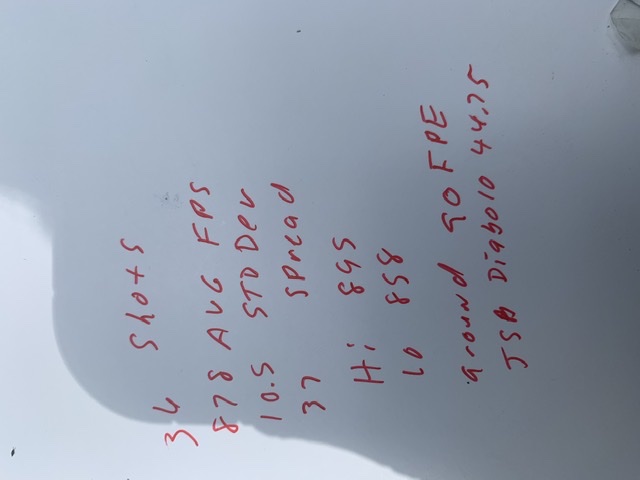 36 Shots
878 AVG FPS
10.5 STD Dev
37 spread
Hi 895
LO 858
around 90 FPE
JSB Diabolo 44.75